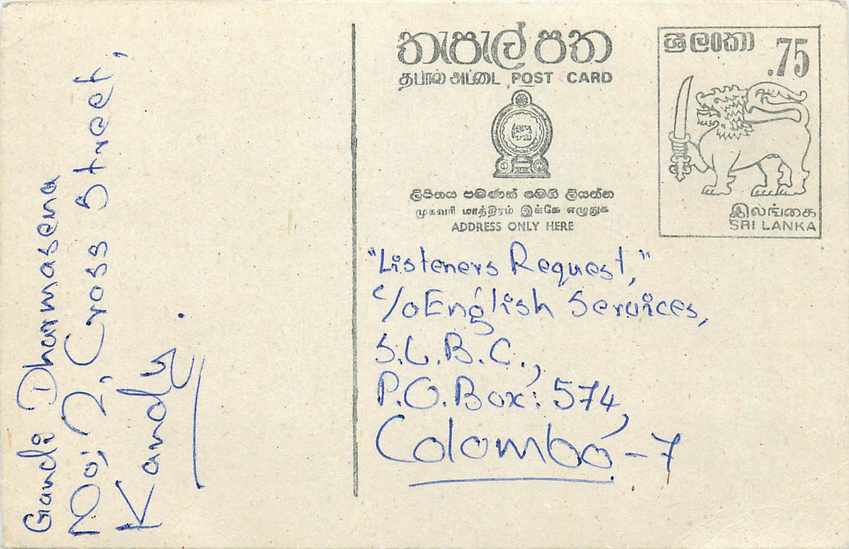 Gandi Dharmasena
No; 2, Cross Street,
Kandy.
තැපැල් පත
தபால் அட்டை POST CARD
ලිපිනය පමණක් මෙහි ලියන්න
முகவரி மாத்திரம் இங்கே எழுதுக
ADDRESS ONLY HERE
ශ්‍රී ලංකා
.75
இலங்கை
SRI LANKA
"Listeners Request,"
c/o English Services,
S.L.B.C.,
P.O. Box: 574,
Colombo-7